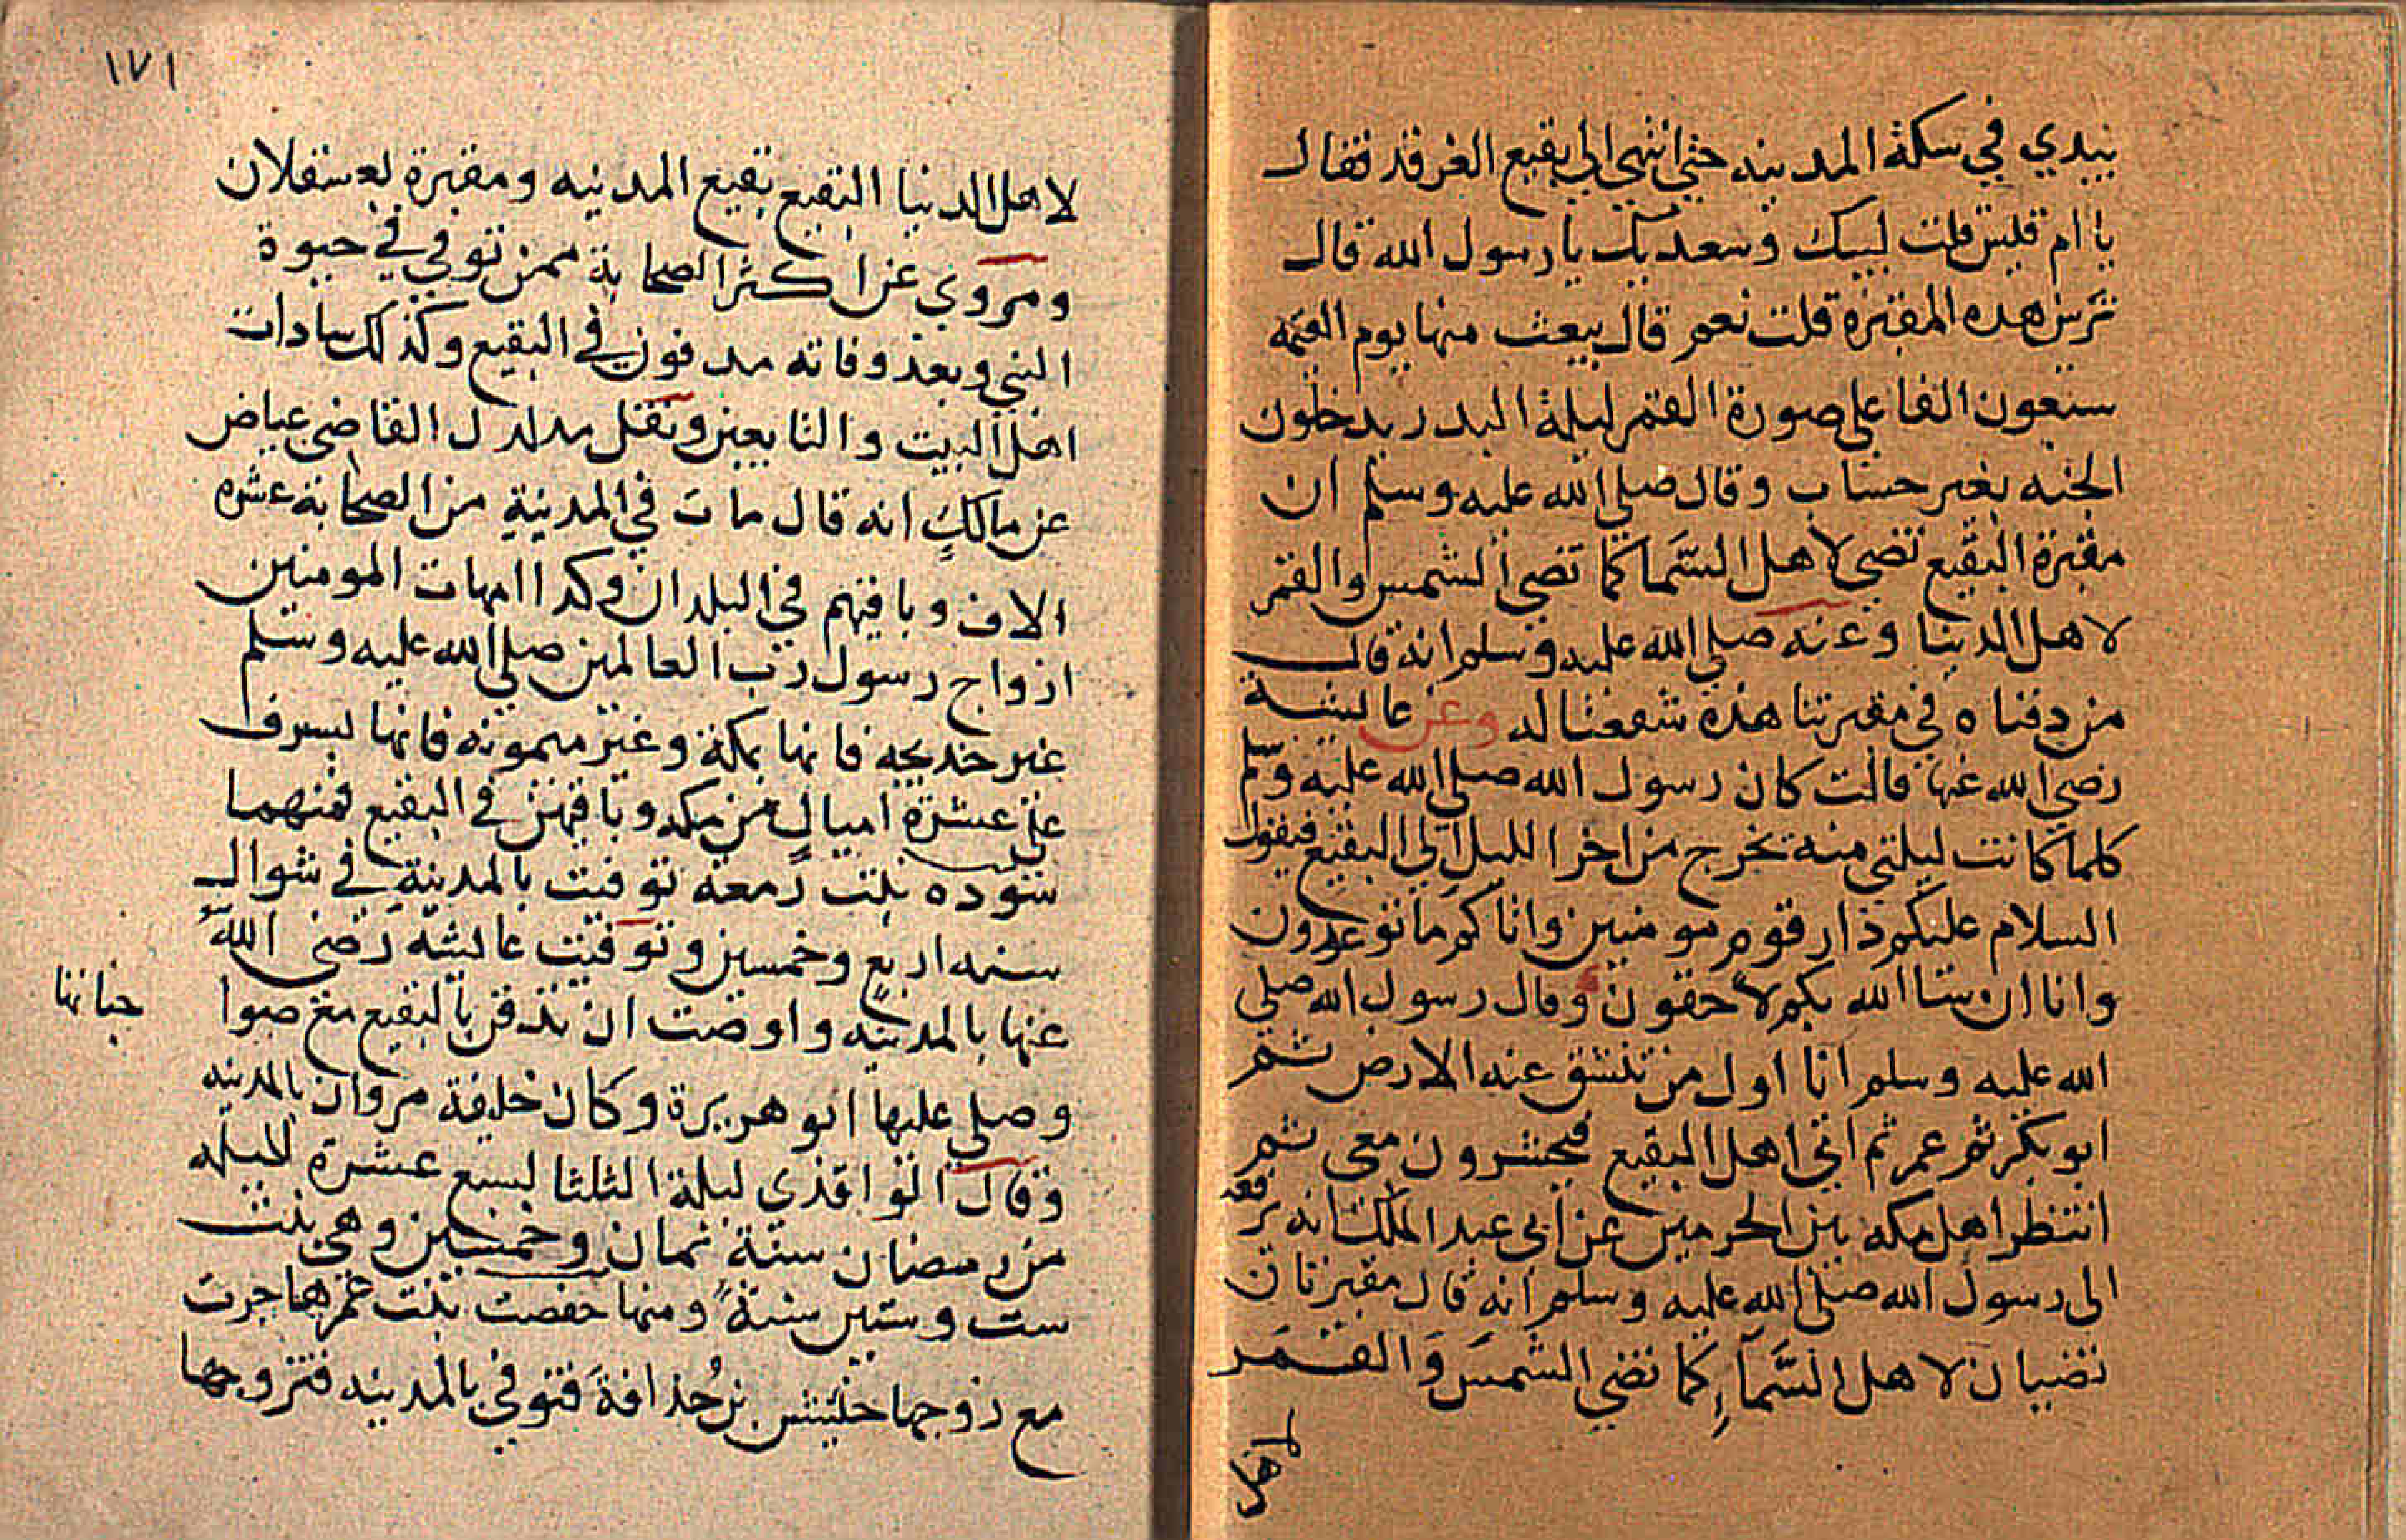 بيدي في سكة المدينه حتي انتهي الي بقيع الغرقد فقال
يا ام قيس قلت لبيك وسعديك يا رسول الله قال
ترين هده المقبره قلت نعم قال يبعث منها يوم القيمه
سبعون الفا علي صورة القمر ليلة البدر يدخلون
الجنه بغير حساب وقال صلي الله عليه وسلم ان
مقبرة البقيع تضي لاهل السما كما تضي الشمس والقمر
لاهل الدنيا وعنه صلي الله عليه وسلم انه قال
من دفناه في مقبرتنا هذه شفعنا له وعن عايشة
رضي الله عنها قالت كان رسول الله صلي الله عليه وسلم
كلما كانت ليلتي منه يخرج من اخر الليل الي البقيع فيقول
السلام عليكم دار قوم مومنين واتاكم ما توعدون
وانا ان شا الله بكم لاحقون وقال رسول الله صلي
الله عليه وسلم انا اول من تنشق عنه الارض ثم
ابو بكر ثم عمر ثم اتي اهل البقيع فيحشرون معي ثم
انتظر اهل مكه بين الحرمين عن ابي عبد الملك انه يرفعه
الى رسول الله صلي الله عليه وسلم انه قال مقبرتان
تضيان لاهل السمآء كما تضي الشمس والقمر
لاهل
١٧١
لاهل الدنيا البقيع بقيع المدينه ومقبرة بعسقلان
ومروي عن اكثر الصحابة ممن توفي في حيوة
النبي وبعد وفاته مدفون في البقيع وكذلك سادات
اهل البيت والتابعين ونقل القاضي عياض
عن مالك انه قال مات في المدينة من الصحابة عشره
الاف وباقيهم في البلدان وكدا امهات المومنين
ازواج رسول رب العالمين صلي الله عليه وسلم
غير خديجه فانها بمكة وغير ميمونه فانها بسرف
علي عشرة اميال من مكه وباقيهن في البقيع فمنهما
سوده بنت زمعة توفيت بالمدينة في شوال
سنه اربع وخمسين وتوفيت عايشه رضي الله
عنها بالمدينه واوصت ان تدفن بالبقيع مع صوا
حباتها
وصلي عليها ابو هريرة وكان خليفة مروان بالمدينه
وقال الواقدي ليلة الثلثا لسبع عشرة لليله
من رمضان سنة ثمان وخمسين وهي بنت
ست وستين سنة ومنها حفصت بنت عمر هاجرت
مع زوجها خنيس بن حذافة فتوفي بالمدينه فتزوجها